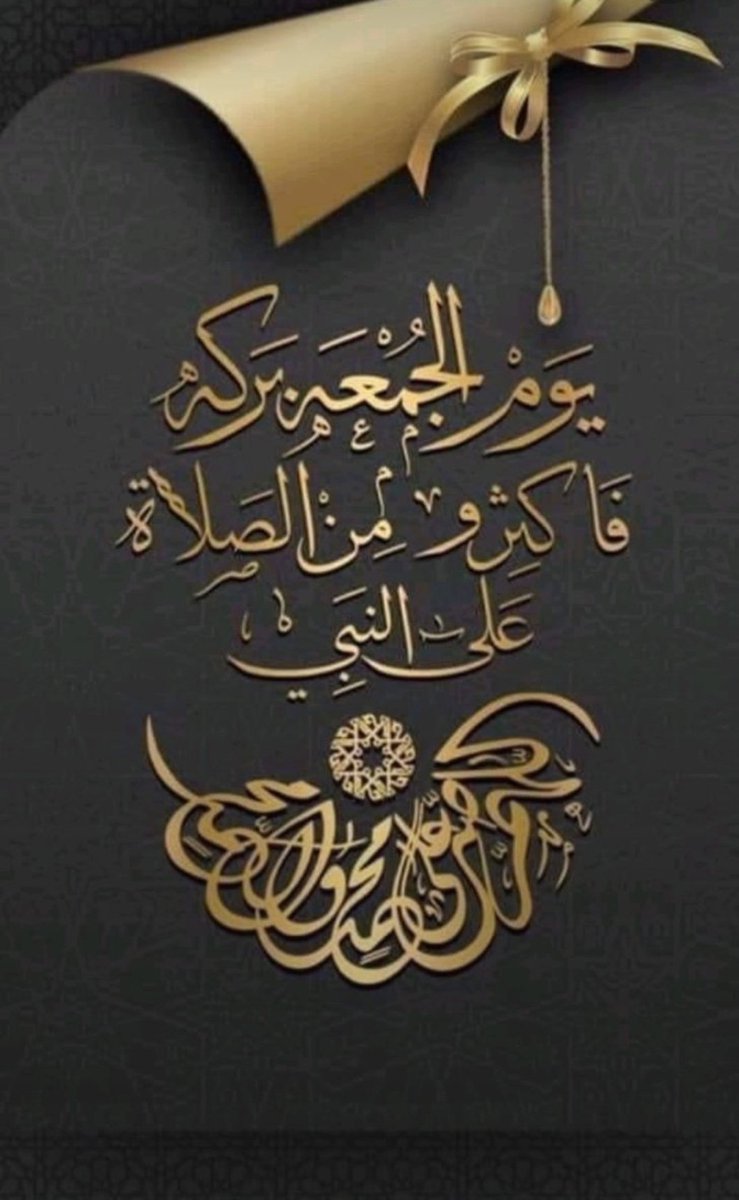 يَوَمْ الجُمْعَه بَركه
فَاكثِرو مِنْ الصَلاة
عَلى النبَي
اللهم صل على محمد وال محمد